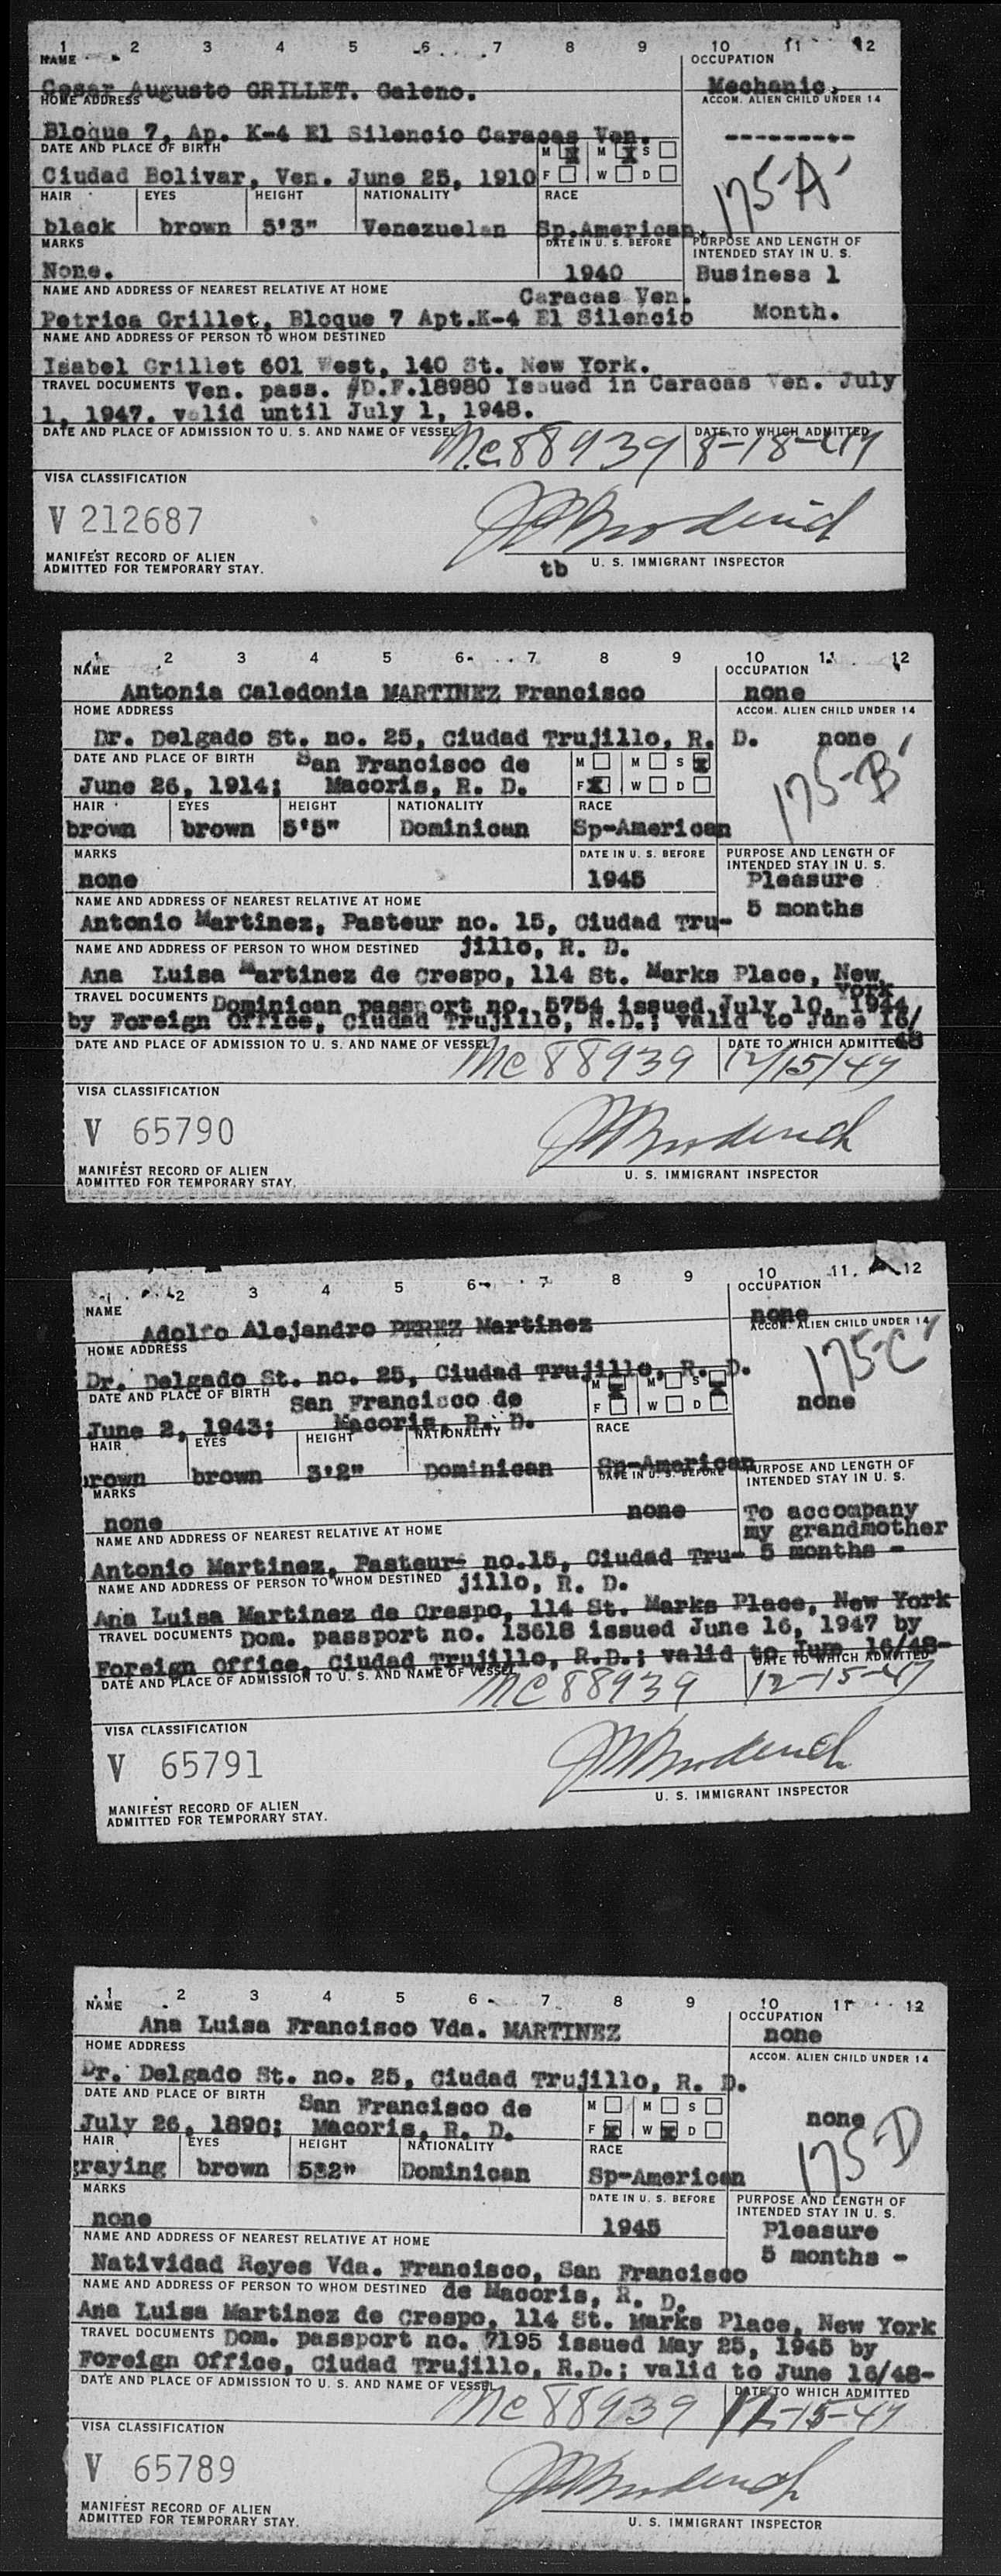 1 2 3 4 5 6 7 8 9 10 11 12
NAME OCCUPATION
Cesar Augusto GRILLET. Galeno. Mechanic.
HOME ADDRESS ACCOM. ALIEN CHILD UNDER 14
Bloque 7, Ap. K-4 El Silencio Caracas Ven. ---------
DATE AND PLACE OF BIRTH M M S
Ciudad Bolivar, Ven. June 25, 1910 F W D 175-A
HAIR EYES HEIGHT NATIONALITY RACE
black brown 5'3" Venezuelan Sp.American.
MARKS DATE IN U. S. BEFORE PURPOSE AND LENGTH OF INTENDED STAY IN U. S.
None. 1940 Business 1
NAME AND ADDRESS OF NEAREST RELATIVE AT HOME Caracas Ven.
Petrica Grillet, Bloque 7 Apt.K-4 El Silencio Month.
NAME AND ADDRESS OF PERSON TO WHOM DESTINED
Isabel Grillet 601 West, 140 St. New York.
TRAVEL DOCUMENTS Ven. pass. #D.F.18980 Issued in Caracas Ven. July
1, 1947. valid until July 1, 1948.
DATE AND PLACE OF ADMISSION TO U. S. AND NAME OF VESSEL DATE TO WHICH ADMITTED
N.C. 88939 8-18-47
VISA CLASSIFICATION
V 212687
MANIFEST RECORD OF ALIEN
ADMITTED FOR TEMPORARY STAY. tb U. S. IMMIGRANT INSPECTOR
1 2 3 4 5 6 7 8 9 10 11 12
NAME OCCUPATION
Antonia Caledonia MARTINEZ Francisco none
HOME ADDRESS ACCOM. ALIEN CHILD UNDER 14
Dr. Delgado St. no. 25, Ciudad Trujillo, R. D. none
DATE AND PLACE OF BIRTH San Francisco de M M S
June 26, 1914; Macoris, R. D. F W D 175-B
HAIR EYES HEIGHT NATIONALITY RACE
brown brown 5'5" Dominican Sp-American
MARKS DATE IN U. S. BEFORE PURPOSE AND LENGTH OF INTENDED STAY IN U. S.
none 1945 Pleasure
NAME AND ADDRESS OF NEAREST RELATIVE AT HOME 5 months
Antonio Martinez, Pasteur no. 15, Ciudad Tru-
NAME AND ADDRESS OF PERSON TO WHOM DESTINED jillo, R. D.
Ana Luisa Martinez de Crespo, 114 St. Marks Place, New York
TRAVEL DOCUMENTS Dominican passport no. 5754 issued July 10, 1944
by Foreign Office, Ciudad Trujillo, R.D.; valid to June 16/48
DATE AND PLACE OF ADMISSION TO U. S. AND NAME OF VESSEL DATE TO WHICH ADMITTED
NC 88939 12/15/47
VISA CLASSIFICATION
V 65790
MANIFEST RECORD OF ALIEN
ADMITTED FOR TEMPORARY STAY. U. S. IMMIGRANT INSPECTOR
1 2 3 4 5 6 7 8 9 10 11 12
NAME OCCUPATION
Adolfo Alejandro PEREZ Martinez none
HOME ADDRESS ACCOM. ALIEN CHILD UNDER 14
Dr. Delgado St. no. 25, Ciudad Trujillo, R. D. 175-C
DATE AND PLACE OF BIRTH San Francisco de M M S none
June 2, 1943; Macoris, R. D. F W D
HAIR EYES HEIGHT NATIONALITY RACE
brown brown 3'2" Dominican Sp-American
MARKS DATE IN U. S. BEFORE PURPOSE AND LENGTH OF INTENDED STAY IN U. S.
none none To accompany
NAME AND ADDRESS OF NEAREST RELATIVE AT HOME my grandmother
Antonio Martinez, Pasteur- no.15, Ciudad Tru- 5 months -
NAME AND ADDRESS OF PERSON TO WHOM DESTINED jillo, R. D.
Ana Luisa Martinez de Crespo, 114 St. Marks Place, New York
TRAVEL DOCUMENTS Dom. passport no. 13618 issued June 16, 1947 by
Foreign Office, Ciudad Trujillo, R.D.; valid to June 16/48-
DATE AND PLACE OF ADMISSION TO U. S. AND NAME OF VESSEL DATE TO WHICH ADMITTED
NC 88939 12-15-47
VISA CLASSIFICATION
V 65791
MANIFEST RECORD OF ALIEN
ADMITTED FOR TEMPORARY STAY. U. S. IMMIGRANT INSPECTOR
1 2 3 4 5 6 7 8 9 10 11 12
NAME OCCUPATION
Ana Luisa Francisco Vda. MARTINEZ none
HOME ADDRESS ACCOM. ALIEN CHILD UNDER 14
Dr. Delgado St. no. 25, Ciudad Trujillo, R. D.
DATE AND PLACE OF BIRTH San Francisco de M M S none
July 26, 1890; Macoris, R. D. F W D 175-D
HAIR EYES HEIGHT NATIONALITY RACE
graying brown 5'2" Dominican Sp-American
MARKS DATE IN U. S. BEFORE PURPOSE AND LENGTH OF INTENDED STAY IN U. S.
none 1945 Pleasure
NAME AND ADDRESS OF NEAREST RELATIVE AT HOME 5 months -
Natividad Reyes Vda. Francisco, San Francisco
NAME AND ADDRESS OF PERSON TO WHOM DESTINED de Macoris, R. D.
Ana Luisa Martinez de Crespo, 114 St. Marks Place, New York
TRAVEL DOCUMENTS Dom. passport no. 7195 issued May 25, 1945 by
Foreign Office, Ciudad Trujillo, R.D.; valid to June 16/48-
DATE AND PLACE OF ADMISSION TO U. S. AND NAME OF VESSEL DATE TO WHICH ADMITTED
NC 88939 12-15-47
VISA CLASSIFICATION
V 65789
MANIFEST RECORD OF ALIEN
ADMITTED FOR TEMPORARY STAY. U. S. IMMIGRANT INSPECTOR